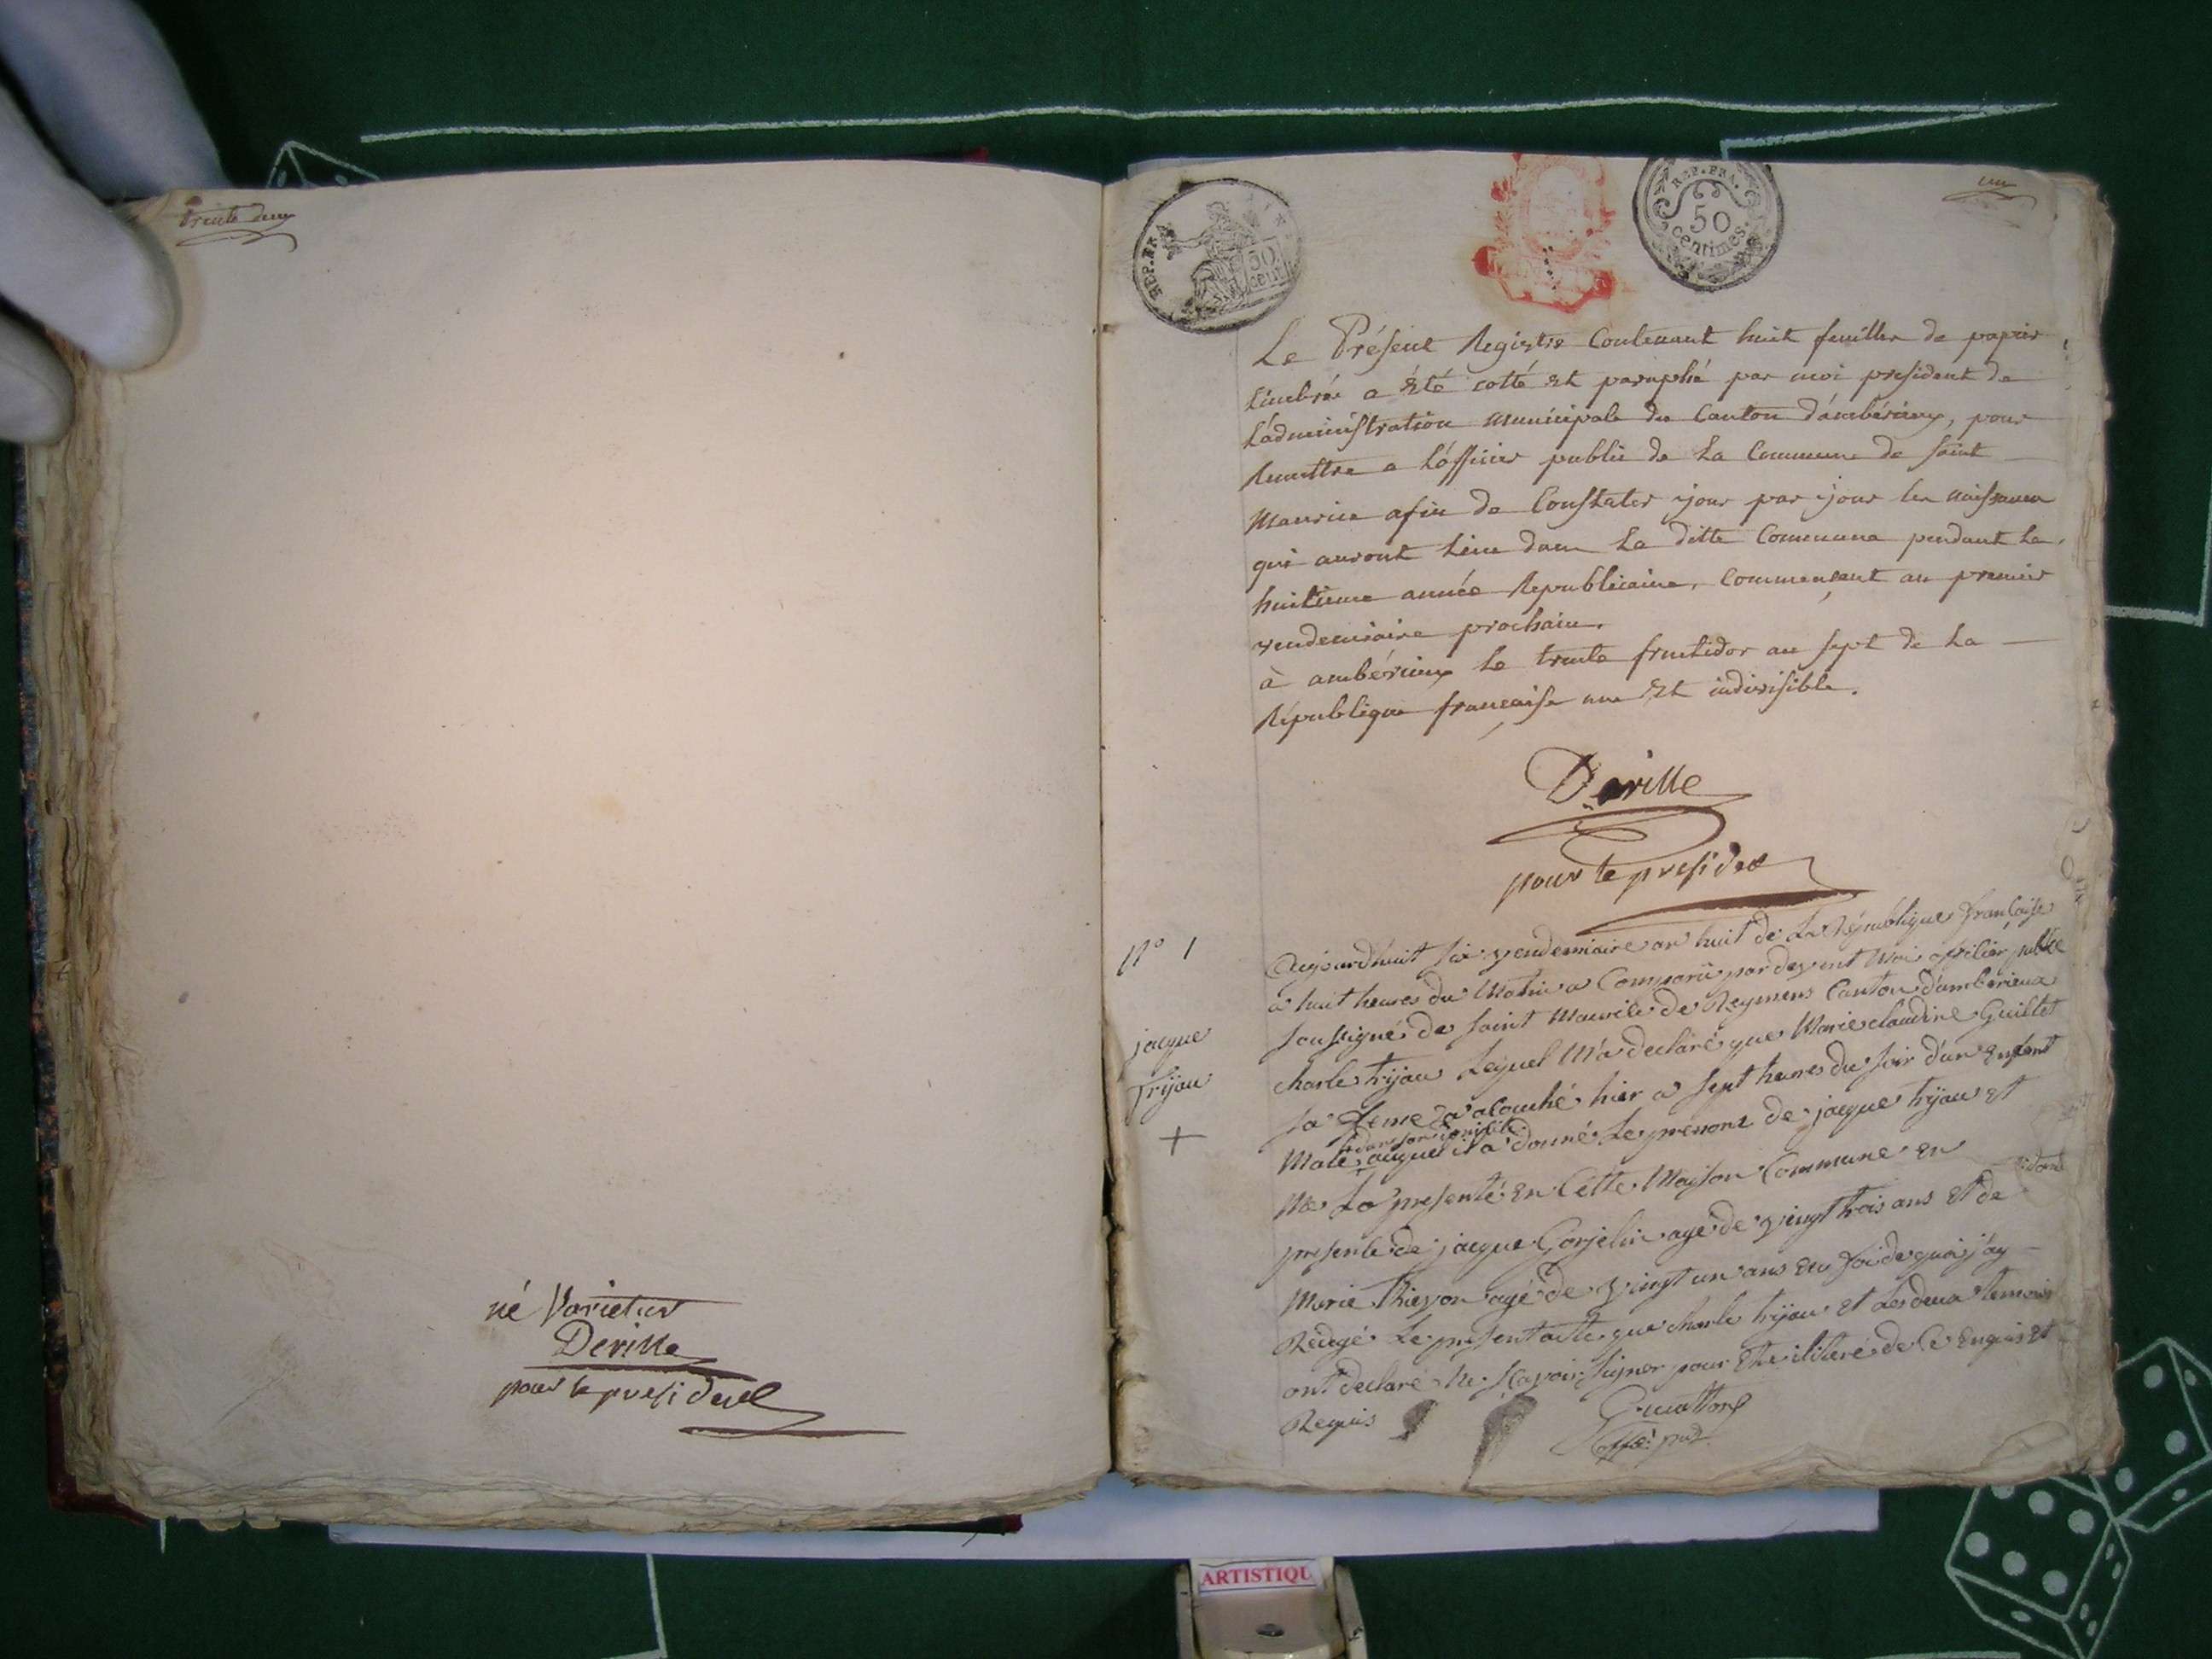 trente deux
né Varietur
Deville
pour le president
REP. FRA.
50
cent
REP. FRA.
50
centimes
un
Le Présent Registre Contenant huit feuilles de papier
timbrée a été cotté et paraphé par moi president de
L'administration municipale du Canton d'ambérieux, pour
Remettre a L'officier public de La Commune de saint
Maurice afin de Constater jour par jour les naissances
qui auront Lieu dans La ditte Commune pendant La
huitieme année Republicaine, Commençant au premier
vendemiaire prochain.
à ambérieux le trente fructidor an sept de La
République française une et indivisible.
Deville
pour le president
N° 1
jacque
Trijau
Aujourdhuit six vendemiaire an huit de La République française
a huit heures du Matin a Comparü par devent Moi officier public
soussigné de saint Maurice de Reymens Canton d'amberieux
Charle trijau Lequel M'a declaré que Marie claudine Guillet
sa feme a acouché hier a sept heures du soir d'un enfent
dans son domicile
Male auquel il a donné Le prenom de jacque trijau et
Me La presenté en Cette Maison Commune en
presente de jacque Gorjelin agé de vingt trois ans et de
Marie thievon agé de vingt un ans en foi de quoi j'ay
Redigé Le present acte que charle trijau et Les deux temoins
ont declaré Ne sçavoir signer pour etre ilitéré de Ce enquis et
Requis
Guatton
offr. pub.
ARTISTIQU